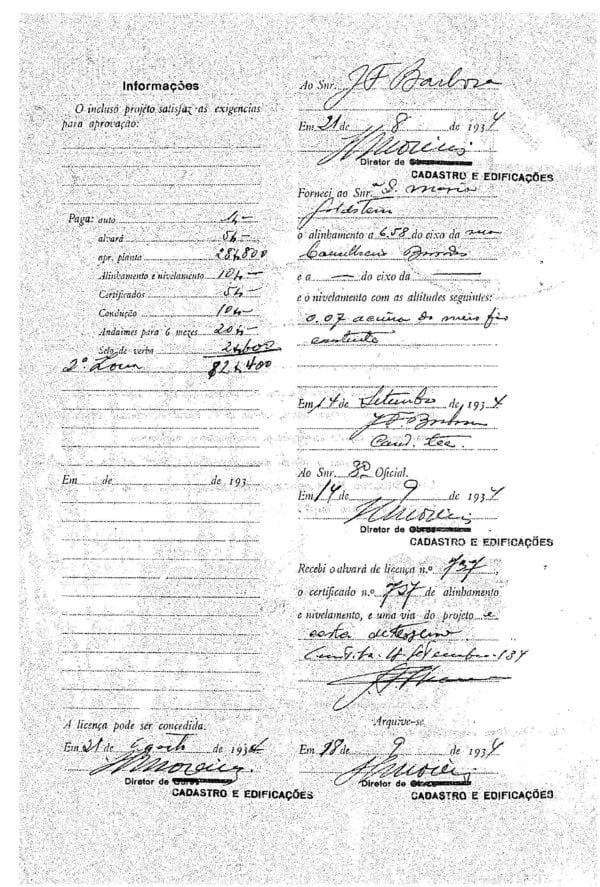 Informações
O incluso projeto satisfaz as exigencias
para aprovação:
Paga: auto 1$-
alvará 5$-
apr. planta 28$800
Alinhamento e nivelamento 10$-
Certificados 5$-
Condução 10$-
Andaimes para 6 mezes 20$-
Selo de verba 2$600
2ª Zona 82$400
Em de de 193
A licença pode ser concedida.
Em 21 de Agosto de 1934
Diretor de
CADASTRO E EDIFICAÇÕES
Ao Snr. J F Barbosa
Em 21 de 8 de 1934
Diretor de
CADASTRO E EDIFICAÇÕES
Forneci ao Snr. S. Maria
Goldstein
o alinhamento a 6.58 do eixo da rua
Conselheiro
e a — do eixo da —
e o nivelamento com as altitudes seguintes:
0.07 acima do meio fio
Em 14 de Setembro de 1934
J.F. Barbosa
Ao Snr. 3º Oficial.
Em 14 de 9 de 1934
Diretor de
CADASTRO E EDIFICAÇÕES
Recebi o alvará de licença n.º 737
o certificado n.º 737 de alinhamento
e nivelamento, e uma via do projeto e
Arquive-se
Em 18 de 9 de 1934
Diretor de
CADASTRO E EDIFICAÇÕES